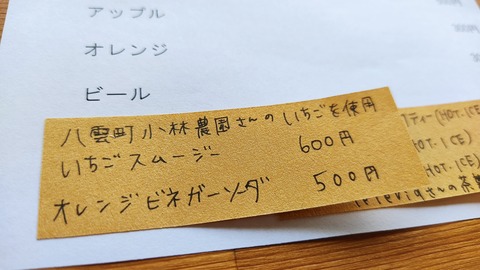 アップル
オレンジ
ビール
八雲町小林農園さんのいちごを使用
いちごスムージー 600円
オレンジビネガーソーダ 500円
ティー(HOT.ICE)
HOT.ICE)
(HOT.ICE)
さんの茶